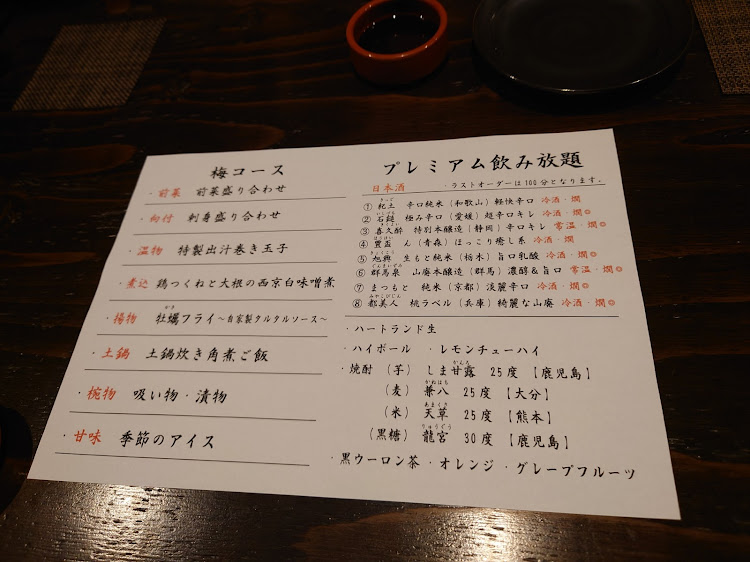 梅コース
・前菜 前菜盛り合わせ
・向付 刺身盛り合わせ
・温物 特製出汁巻き玉子
・煮込 鶏つくねと大根の西京白味噌煮
・揚物 牡蠣フライ～自家製タルタルソース～
・土鍋 土鍋炊き角煮ご飯
・椀物 吸い物・漬物
・甘味 季節のアイス
プレミアム飲み放題
日本酒 ・ラストオーダーは100分となります。
① 紀土 辛口純米（和歌山）軽快辛口 冷酒・燗◎
② 石鎚 極み辛口（愛媛）超辛口キレ 冷酒・燗◎
③ 喜久酔 特別本醸造（静岡）辛口キレ 常温・燗◎
④ 豊盃 ん（青森）ほっこり癒し系 冷酒・燗
⑤ 旭興 生もと純米（栃木）旨口乳酸 冷酒・燗◎
⑥ 群馬泉 山廃本醸造（群馬）濃醇＆旨口 常温・燗◎
⑦ まつもと 純米（京都）淡麗辛口 冷酒・燗
⑧ 都美人 桃ラベル（兵庫）綺麗な山廃 冷酒・燗◎
・ハートランド生
・ハイボール ・レモンチューハイ
・焼酎（芋）しま甘露 25度【鹿児島】
（麦）兼八 25度【大分】
（米）天草 25度【熊本】
（黒糖）龍宮 30度【鹿児島】
・黒ウーロン茶 ・オレンジ ・グレープフルーツ